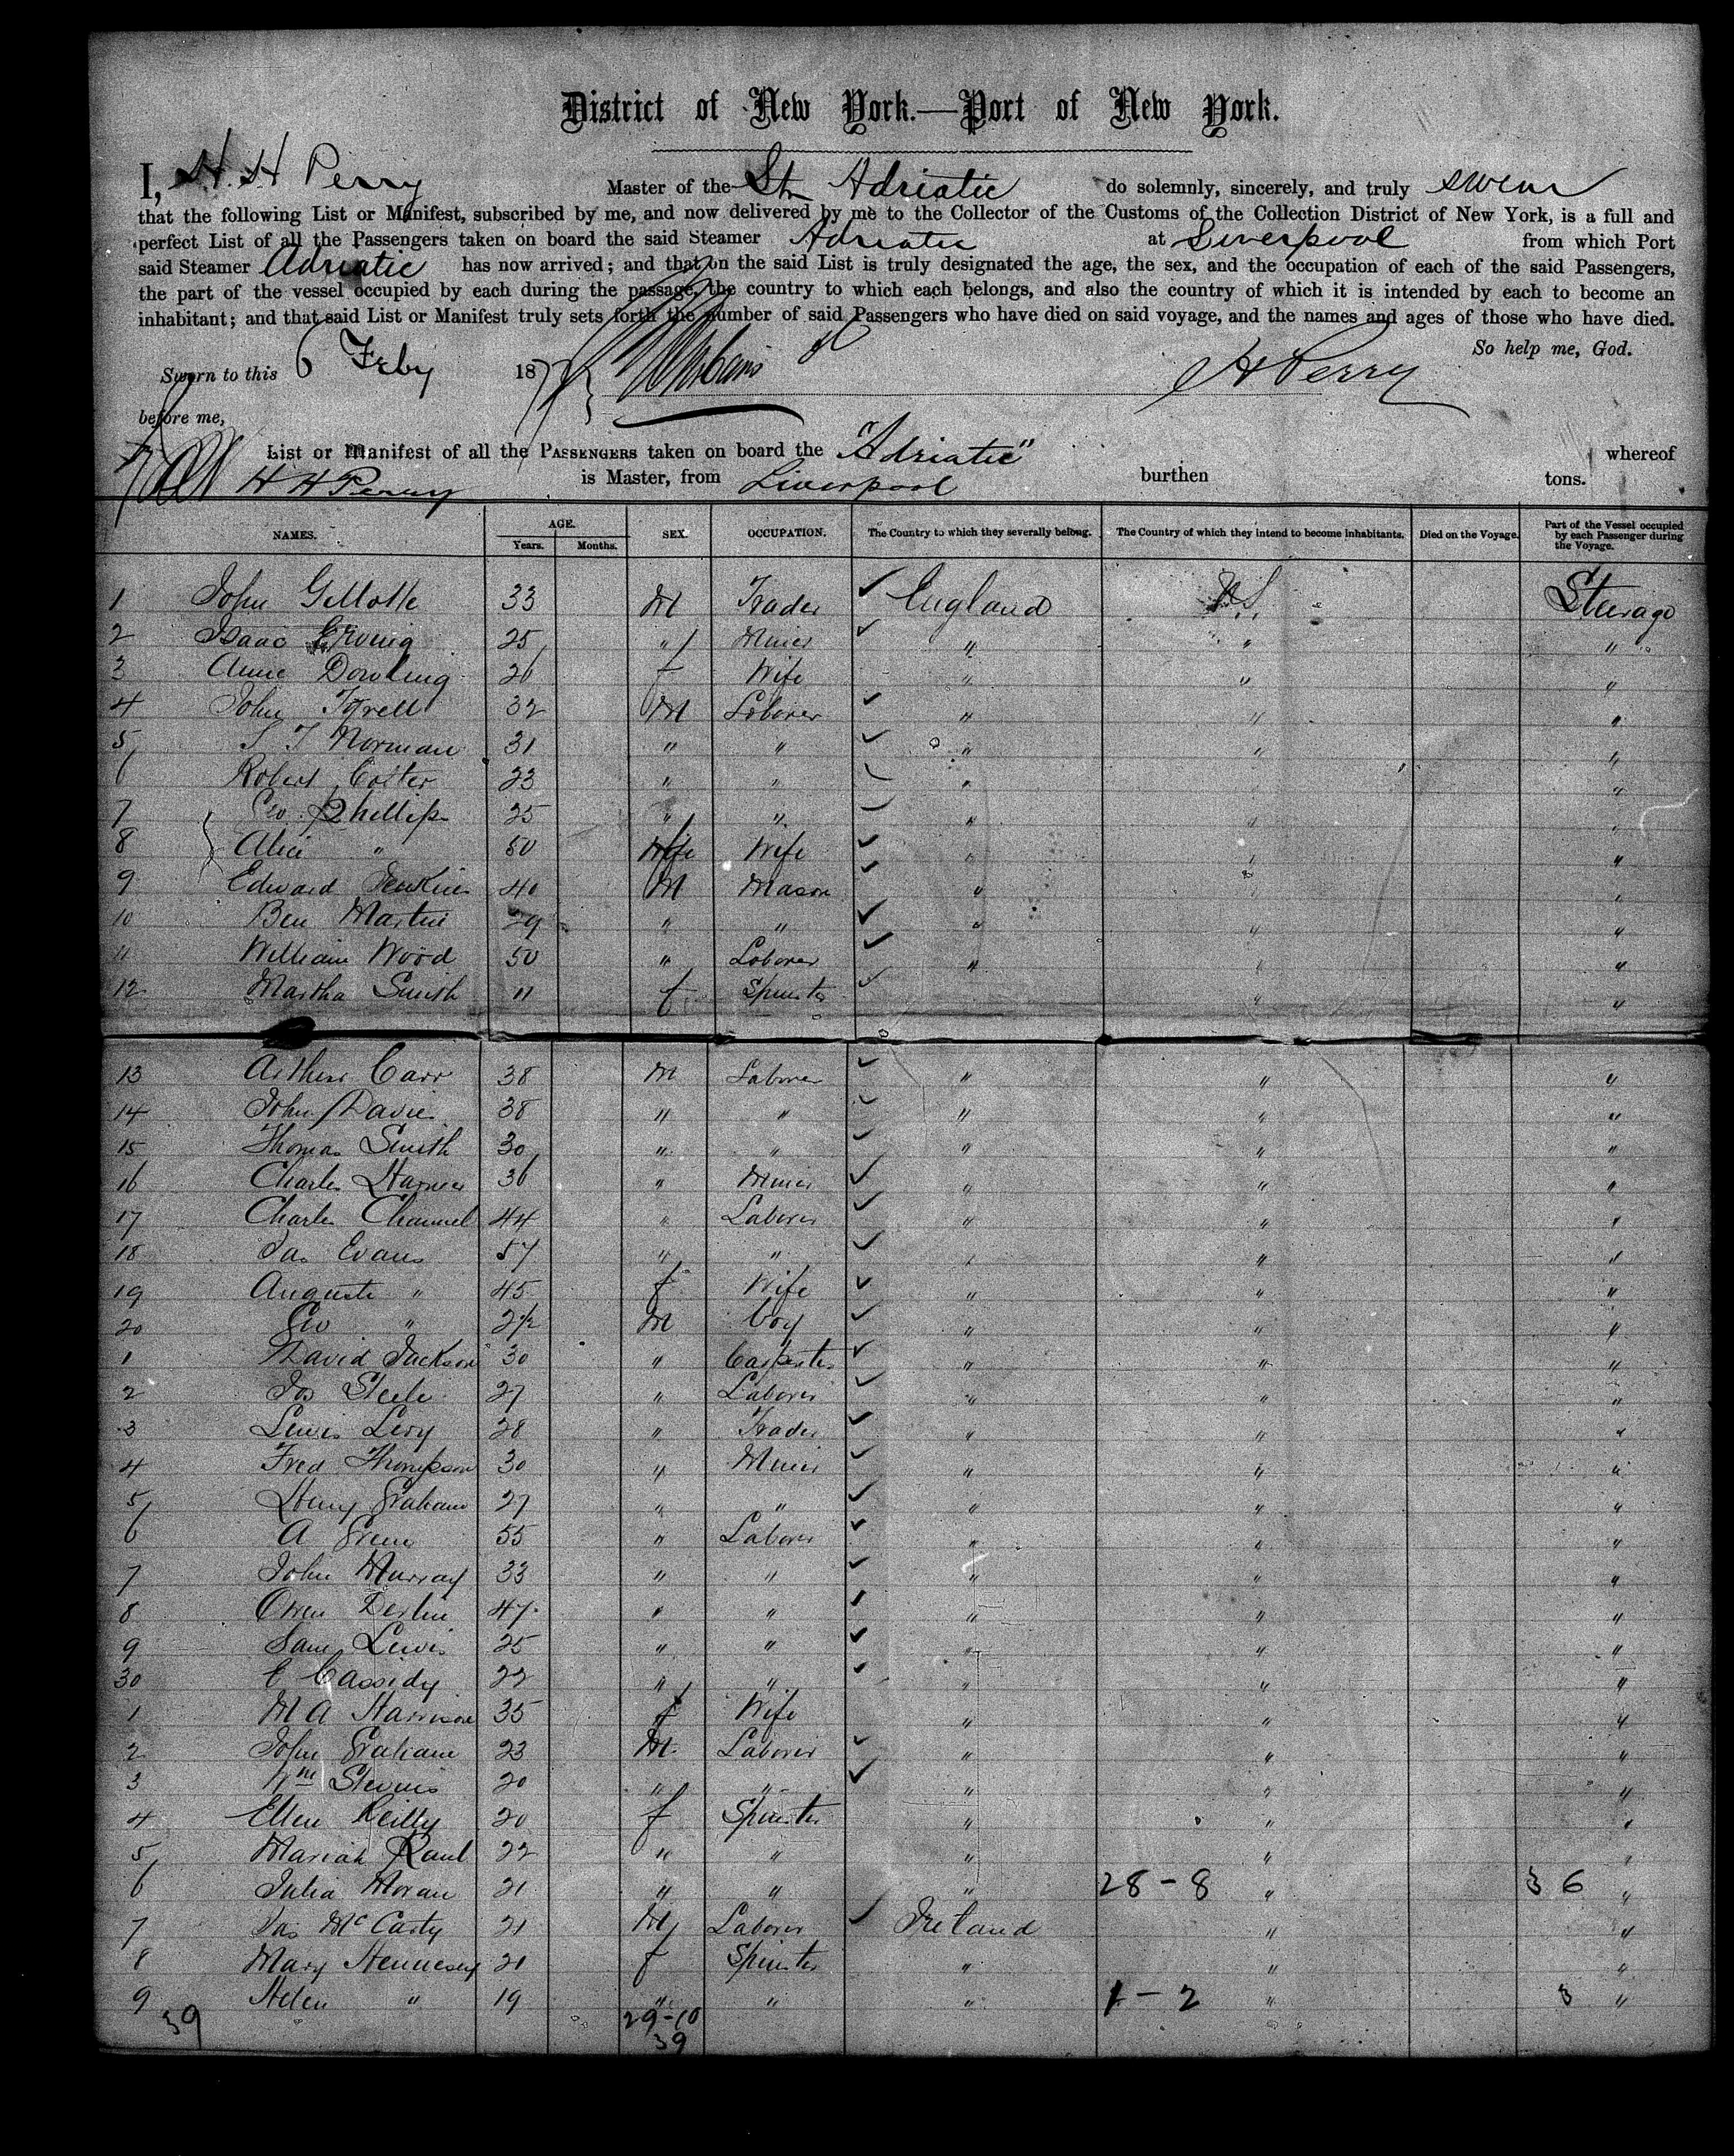 District of New York.—Port of New York.
I, H. H Perry Master of the Str Adriatic do solemnly, sincerely, and truly swear
that the following List or Manifest, subscribed by me, and now delivered by me to the Collector of the Customs of the Collection District of New York, is a full and
perfect List of all the Passengers taken on board the said Steamer Adriatic at Liverpool from which Port
said Steamer Adriatic has now arrived; and that on the said List is truly designated the age, the sex, and the occupation of each of the said Passengers,
the part of the vessel occupied by each during the passage, the country to which each belongs, and also the country of which it is intended by each to become an
inhabitant; and that said List or Manifest truly sets forth the number of said Passengers who have died on said voyage, and the names and ages of those who have died.
So help me, God.
Sworn to this 6 Feby 187 H Perry
before me,
List or Manifest of all the PASSENGERS taken on board the "Adriatic" whereof
H H Perry is Master, from Liverpool burthen tons.
NAMES. AGE. SEX. OCCUPATION. The Country to which they severally belong. The Country of which they intend to become inhabitants. Died on the Voyage. Part of the Vessel occupied by each Passenger during the Voyage.
Years. Months.
1 John 33 M Trader England U.S. Steerage
2 Isaac 25 " Miner " " "
3 Anne Dowling 26 f Wife " " "
4 John Tyrell 32 M Laborer " " "
5 S T Norman 31 " " " " "
6 Robert Coster 23 " " " "
7 Geo Phillips 25 " " " " "
8 Alice " 50 Wife " " "
9 Edward Jenkins 40 M Mason " "
10 Ben Martin 29 " " " " "
11 William Wood 50 " Laborer " " "
12 Martha Smith 11 f Spinster " "
13 Arthur Carr 38 M Laborer " " "
14 John Davies 38 " " " " "
15 Thomas Smith 30 " " " " "
16 Charles 36 " Miner " " "
17 Charles Channel 44 " Laborer " " "
18 Jas Evans 57 " " " " "
19 Auguste " 45 f Wife " " "
20 Geo " 2½ M boy " " "
1 David Jackson 30 " Carpenter " " "
2 Jos Steele 27 " Laborer " " "
3 Lewis Levy 28 " Trader " " "
4 Fred Thompson 30 " Miner " " "
5 Henry Graham 27 " " " " "
6 A Green 55 " Laborer " " "
7 John Murray 33 " " " " "
8 Owen Devlin 47 " " " " "
9 Sam Lewis 25 " " " " "
30 E Cassidy 22 " " " " "
1 M A Harrison 35 f Wife " " "
2 John Graham 23 M Laborer " " "
3 Wm Stevens 20 " " " " "
4 Ellen Reilly 20 f Spinster " " "
5 Mariah Raul 22 " " " " "
6 Julia Moran 21 " " " 28 - 8 " 36 "
7 Jas McCarty 21 M Laborer Ireland " "
8 Mary Hennesey 21 f Spinster " " "
9 Helen " 19 " " " 1 - 2 " 3 "
39 29-10
39